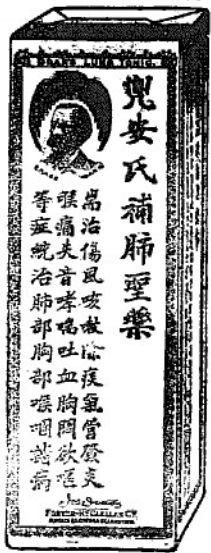 DOAN'S LUNG TONIC
兜安氏補肺聖藥
耑治傷風咳嗽除痰氣管發炎
喉痛失音哮喘吐血胸悶欲嘔
等症統治肺部胸部喉咽諸病
FOSTER-McCLELLAN CO.